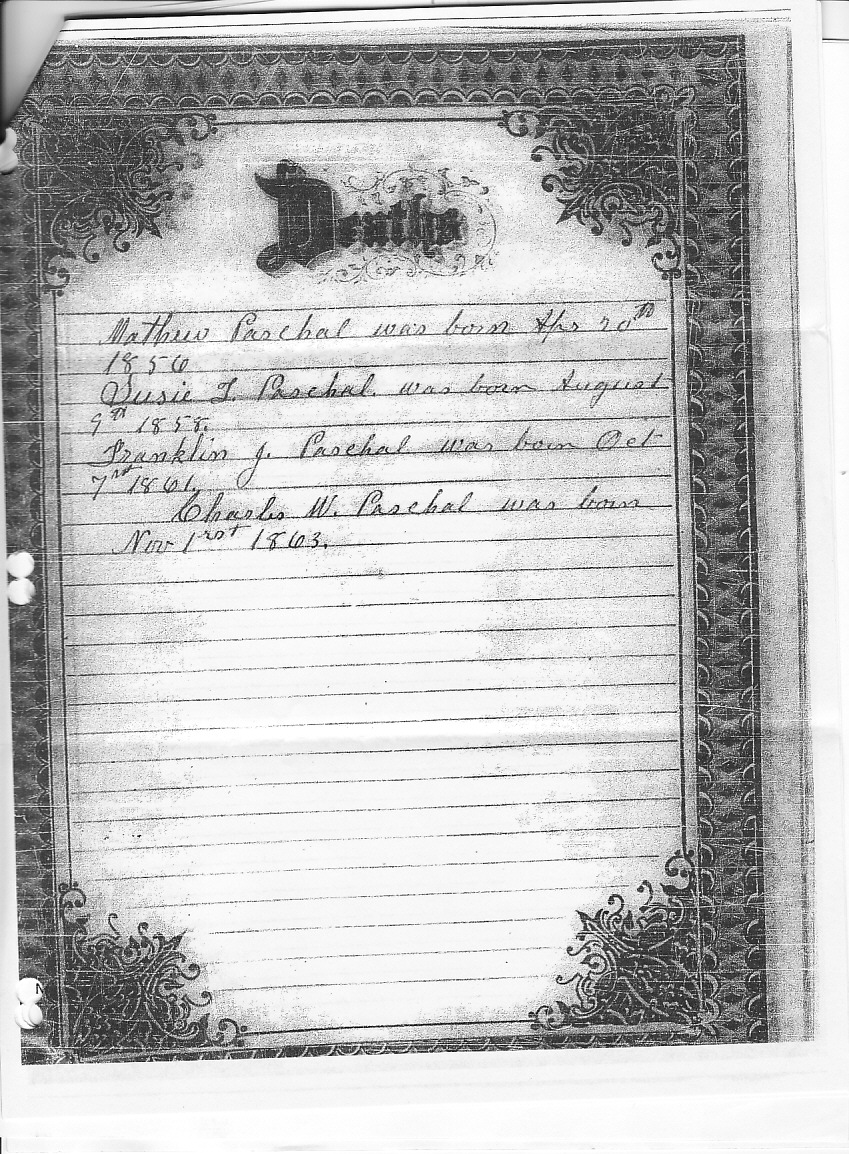 Deaths
Mathew Paschal was born Apr 20th
1856
Susie T. Paschal. was born August
9th 1858.
Franklin J. Paschal was born Oct
7rst 1861.
Charles W. Paschal was born
Nov 1rst 1863.